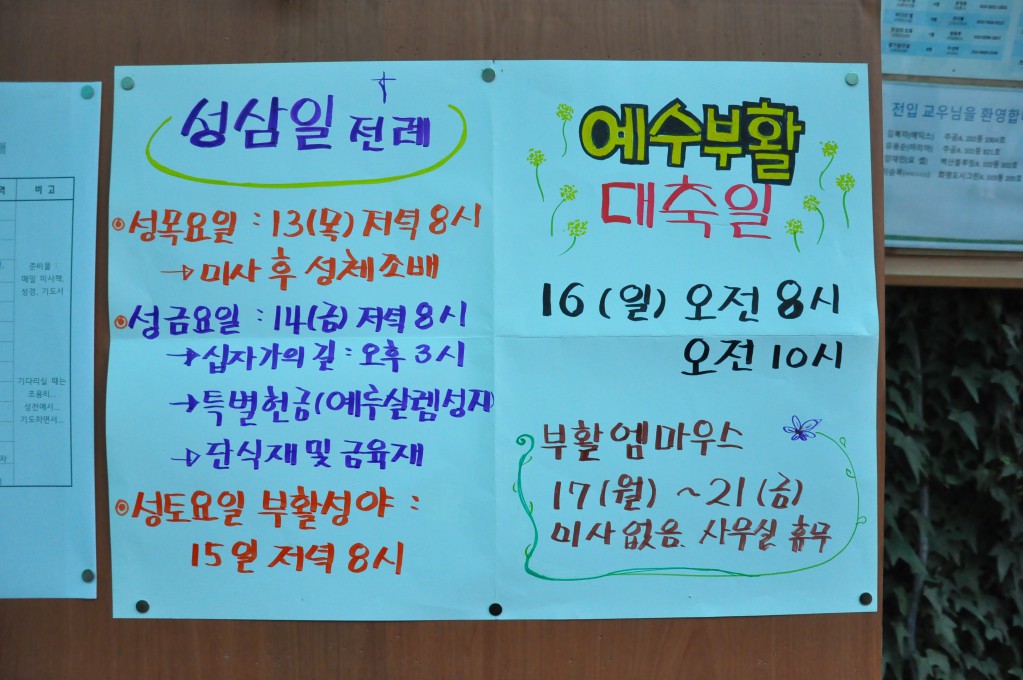 성삼일 전례
성목요일 : 13(목) 저녁 8시
→ 미사 후 성체조배
성금요일 : 14(금) 저녁 8시
→ 십자가의 길 : 오후 3시
→ 특별헌금(예루살렘성지)
→ 단식재 및 금육재
성토요일 부활성야 :
15일 저녁 8시
예수부활
대축일
16(일) 오전 8시
오전 10시
부활 엠마우스
17(월) ~ 21(금)
미사 없음. 사무실 휴무
비 고
준비물 :
매일 미사책,
성경, 기도서
기다리실 때는
조용히...
성전에서...
기도하면서...
전입 교우님을 환영합